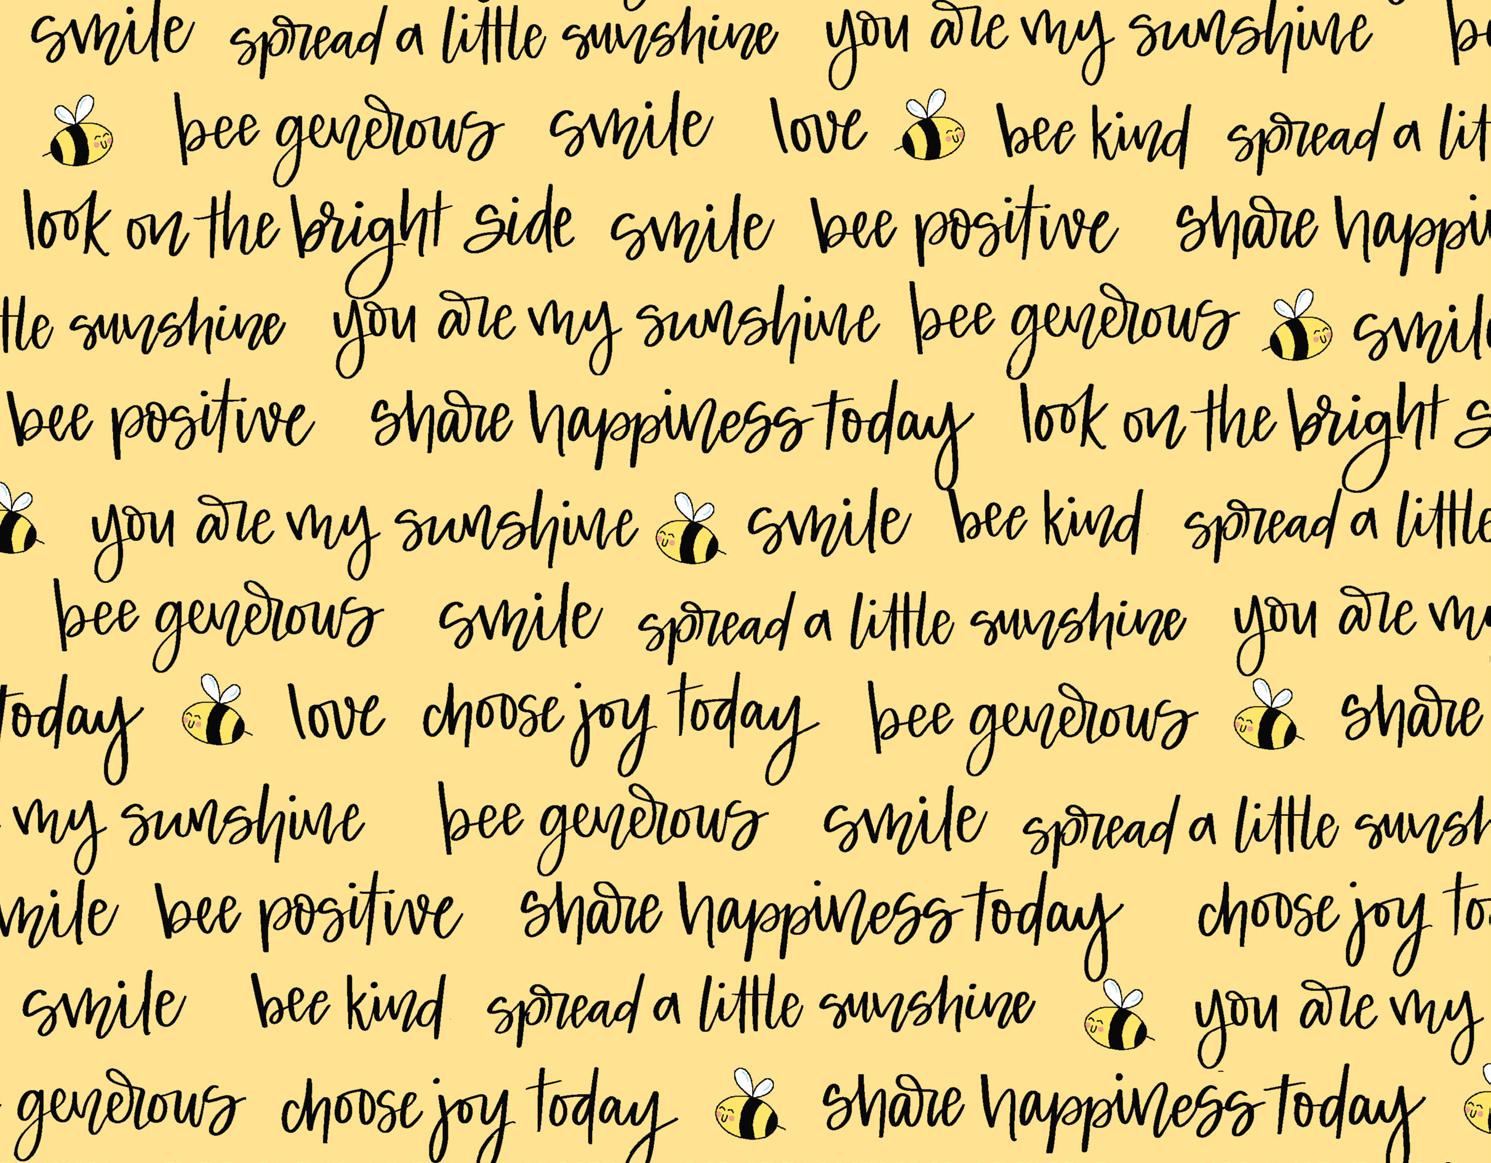 smile spread a little sunshine you are my sunshine be
bee generous smile love bee kind spread a lit
look on the bright side smile bee positive share happi
tle sunshine you are my sunshine bee generous smile
bee positive share happiness today look on the bright s
you are my sunshine smile bee kind spread a little
bee generous smile spread a little sunshine you are my
today love choose joy today bee generous share
my sunshine bee generous smile spread a little sunsh
mile bee positive share happiness today choose joy to
smile bee kind spread a little sunshine you are my
generous choose joy today share happiness today